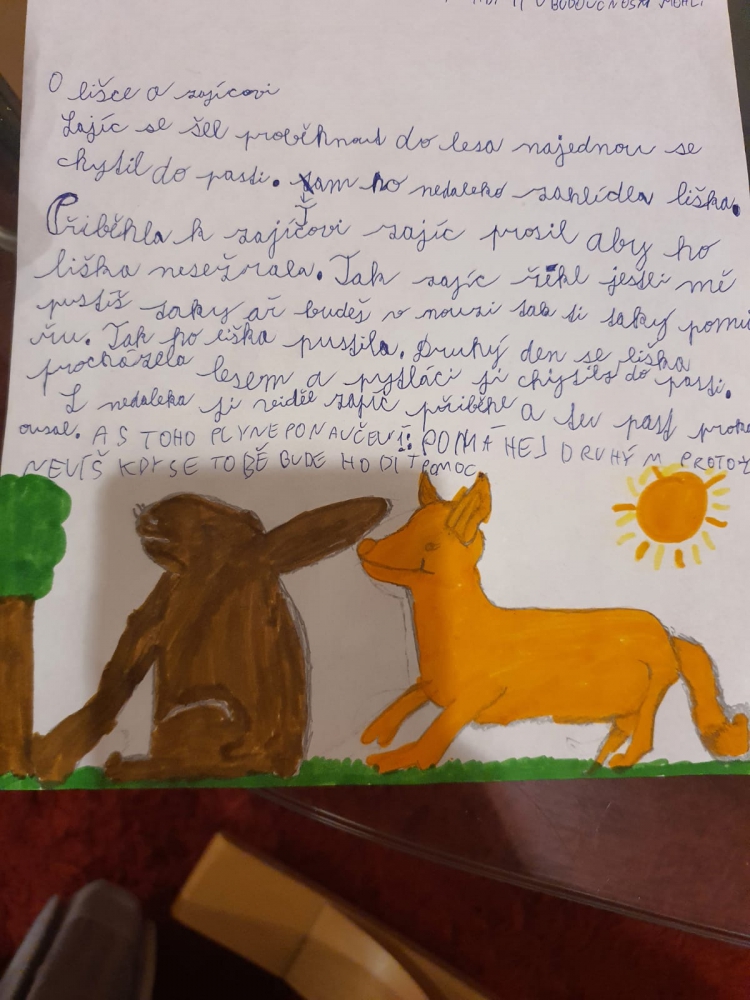 V BUDOUCNOSTI MOHLI
O lišce a zajícovi
Zajíc se šel proběhnout do lesa najednou se
chytil do pasti. Tam ho nedaleko zahlídla liška.
Přiběhla k zajícovi zajíc prosil aby ho
liška nesežrala. Tak zajíc řekl jestli mě
pustíš taky až budeš v nouzi tak ti taky pomů
žu. Tak ho liška pustila. Druhý den se liška
procházela lesem a pytláci ji chytily do pasti.
Z nedaleka ji viděl zajíc přiběhl a tu past prok
ousal. A S TOHO PLYNE PONAUČENÍ: POMÁHEJ DRUHÝM PROTOŽ
NEVÍŠ KDY SE TOBĚ BUDE HODIT POMOC